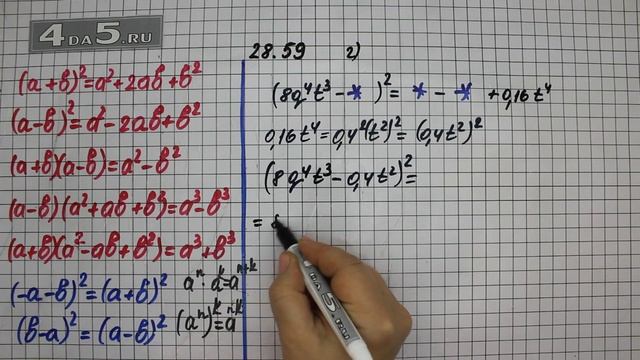 4DA5.RU
(a+b)²=a²+2ab+b²
(a-b)²=a²-2ab+b²
(a+b)(a-b)=a²-b²
(a-b)(a²+ab+b²)=a³-b³
(a+b)(a²-ab+b²)=a³+b³
(-a-b)²=(a+b)²
(b-a)²=(a-b)²
aⁿ·aᵏ=aⁿ⁺ᵏ
(aⁿ)ᵏ=aⁿᵏ
28.59 г)
(8q⁴t³-*)²=*-*+0,16t⁴
0,16t⁴=0,4²(t²)²=(0,4t²)²
(8q⁴t³-0,4t²)²=
=
DA5.RU